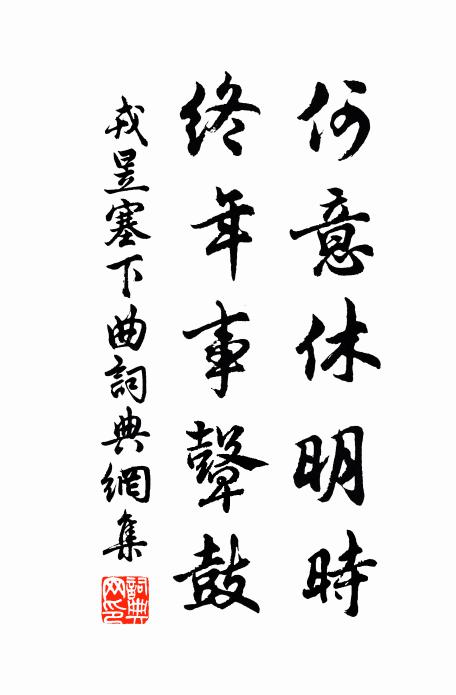 何意休明時
終年事鼙鼓
戎昱塞下曲詞典網集
詞典網印